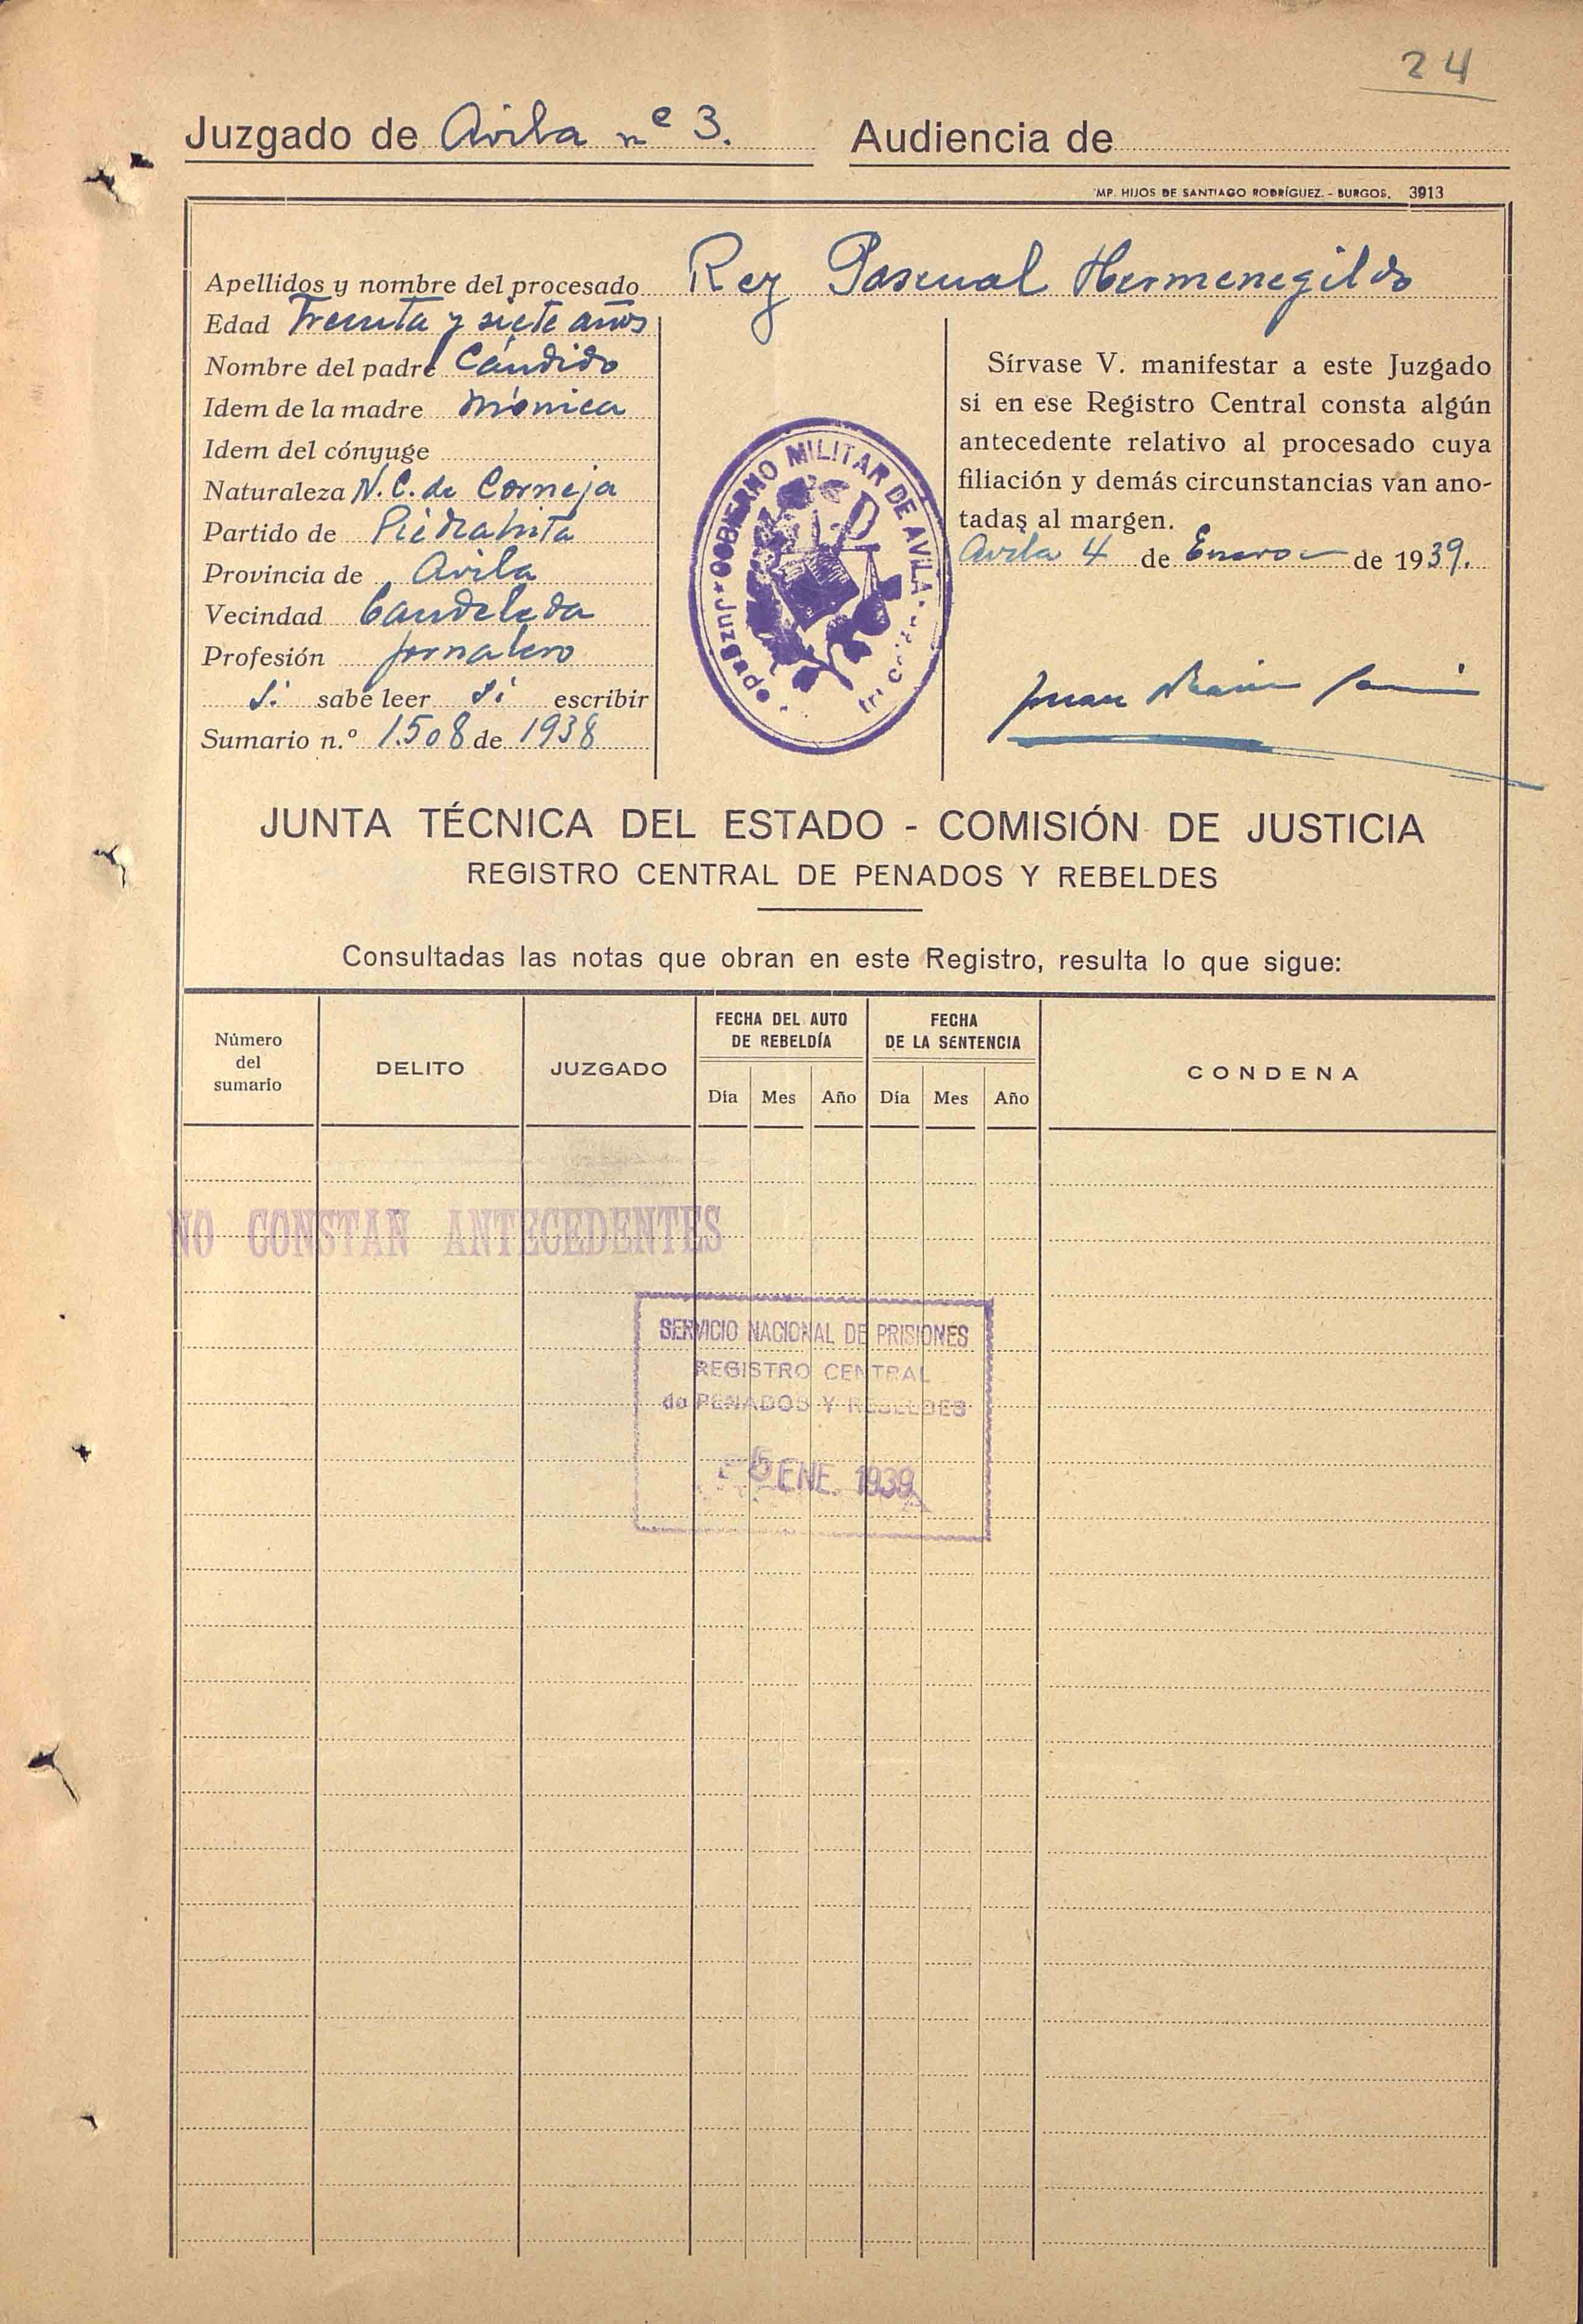 24
Juzgado de Avila nº 3. Audiencia de
IMP. HIJOS DE SANTIAGO RODRÍGUEZ. - BURGOS. 3913
Apellidos y nombre del procesado Rey Pascual Hermenegildo
Edad Treinta y siete años
Nombre del padre Cándido
Idem de la madre Mónica
Idem del cónyuge
Naturaleza N. C. de Corneja
Partido de Piedrahita
Provincia de Avila
Vecindad Candeleda
Profesión jornalero
Si sabe leer si escribir
Sumario n.º 1.508 de 1938
GOBIERNO MILITAR DE AVILA
Juzgado
Sírvase V. manifestar a este Juzgado
si en ese Registro Central consta algún
antecedente relativo al procesado cuya
filiación y demás circunstancias van ano-
tadas al margen.
Avila 4 de Enero de 1939.
Juan
JUNTA TÉCNICA DEL ESTADO - COMISIÓN DE JUSTICIA
REGISTRO CENTRAL DE PENADOS Y REBELDES
Consultadas las notas que obran en este Registro, resulta lo que sigue:
Número del sumario
DELITO
JUZGADO
FECHA DEL AUTO DE REBELDÍA
Día Mes Año
FECHA DE LA SENTENCIA
Día Mes Año
CONDENA
NO CONSTAN ANTECEDENTES
SERVICIO NACIONAL DE PRISIONES
REGISTRO CENTRAL
de PENADOS Y REBELDES
5 ENE. 1939